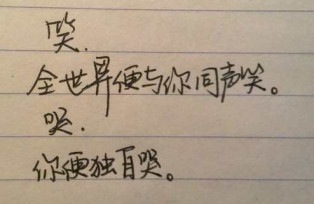 笑.
全世界便与你同声笑。
哭.
你便独自哭。